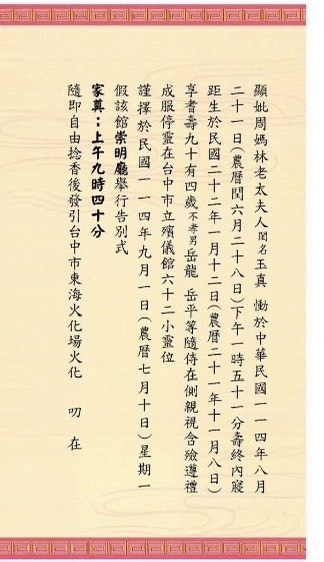 顯妣周媽林老太夫人閨名玉真　慟於中華民國一一四年八月
二十一日(農曆閏六月二十八日)下午一時五十一分壽終內寢
距生於民國二十二年一月十二日(農曆二十一年十一月八日)
享耆壽九十有四歲不孝男岳龍　岳平等隨侍在側親視含殮遵禮
成服停靈在台中市立殯儀館六十二小靈位
謹擇於民國一一四年九月一日(農曆七月十日)星期一
假該館崇明廳舉行告別式
家奠：上午九時四十分
隨即自由捻香後發引台中市東海火化場火化　叨　在